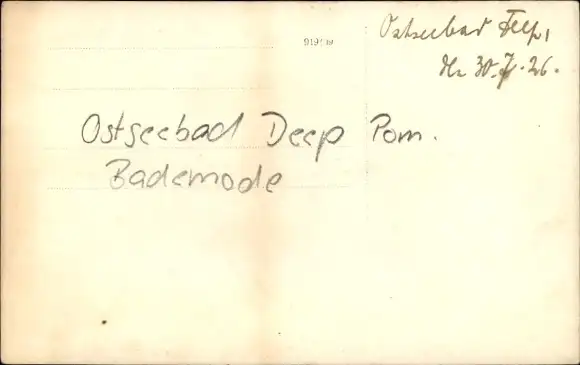 Ostseebad Deep,
den 30. 7. 26.
Ostseebad Deep Pom.
Bademode